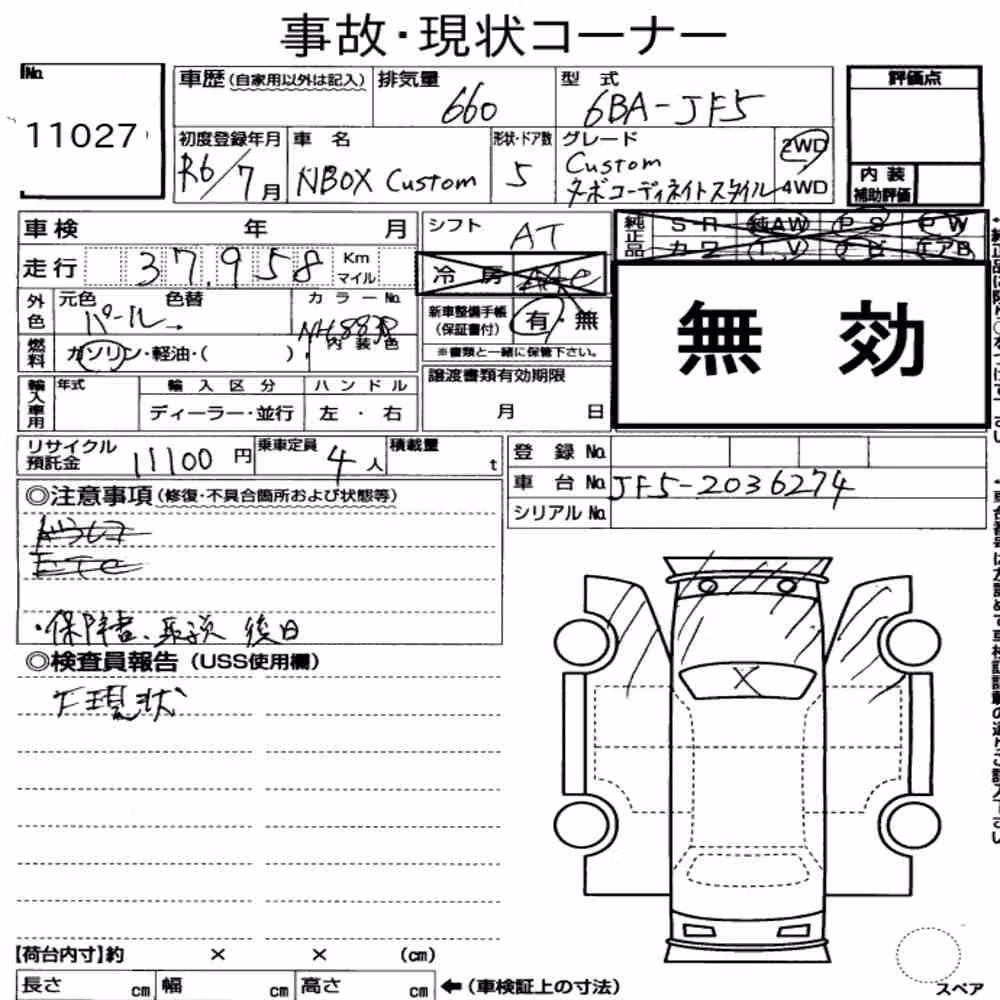 事故・現状コーナー
No.
11027
車歴(自家用以外は記入)
排気量
660
型式
6BA-JF5
評価点
初度登録年月
R6/7月
車名
NBOX Custom
形状・ドア数
5
グレード
Custom
ターボコーディネイトスタイル
2WD
4WD
内装
補助評価
車検 年 月
シフト
AT
純正品
S-R 純AW P S P W
カワ T V ナビ エアB
走行 37,958 Km
マイル
冷房
外色
元色 色替
パール
カラーNo.
内装色
新車整備手帳
(保証書付)
有・無
※書類と一緒に保管下さい。
無効
燃料
ガソリン・軽油・( )
輸入車用
年式
輸入区分
ハンドル
ディーラー・並行
左・右
譲渡書類有効期限
月 日
リサイクル
預託金
11100円
乗車定員
4人
積載量
t
登録No.
車台No. JF5-2036274
シリアルNo.
◎注意事項(修復・不具合箇所および状態等)
ドラレコ
ETC
・保障書、取説 後日
◎検査員報告(USS使用欄)
下現状
【荷台内寸】約 × × (cm)
長さ cm 幅 cm 高さ cm ←(車検証上の寸法)
スペア